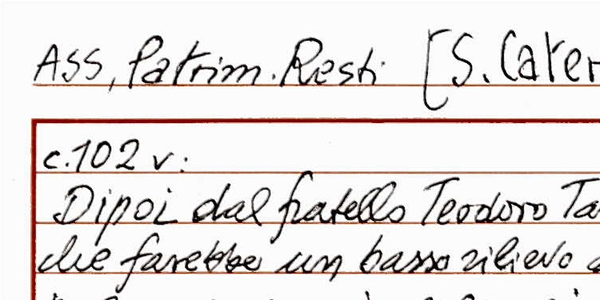 ASS, Patrim. Resti [S. Cater
c. 102 v:
Dipoi dal fratello Teodoro Ta
che farebbe un basso rilievo